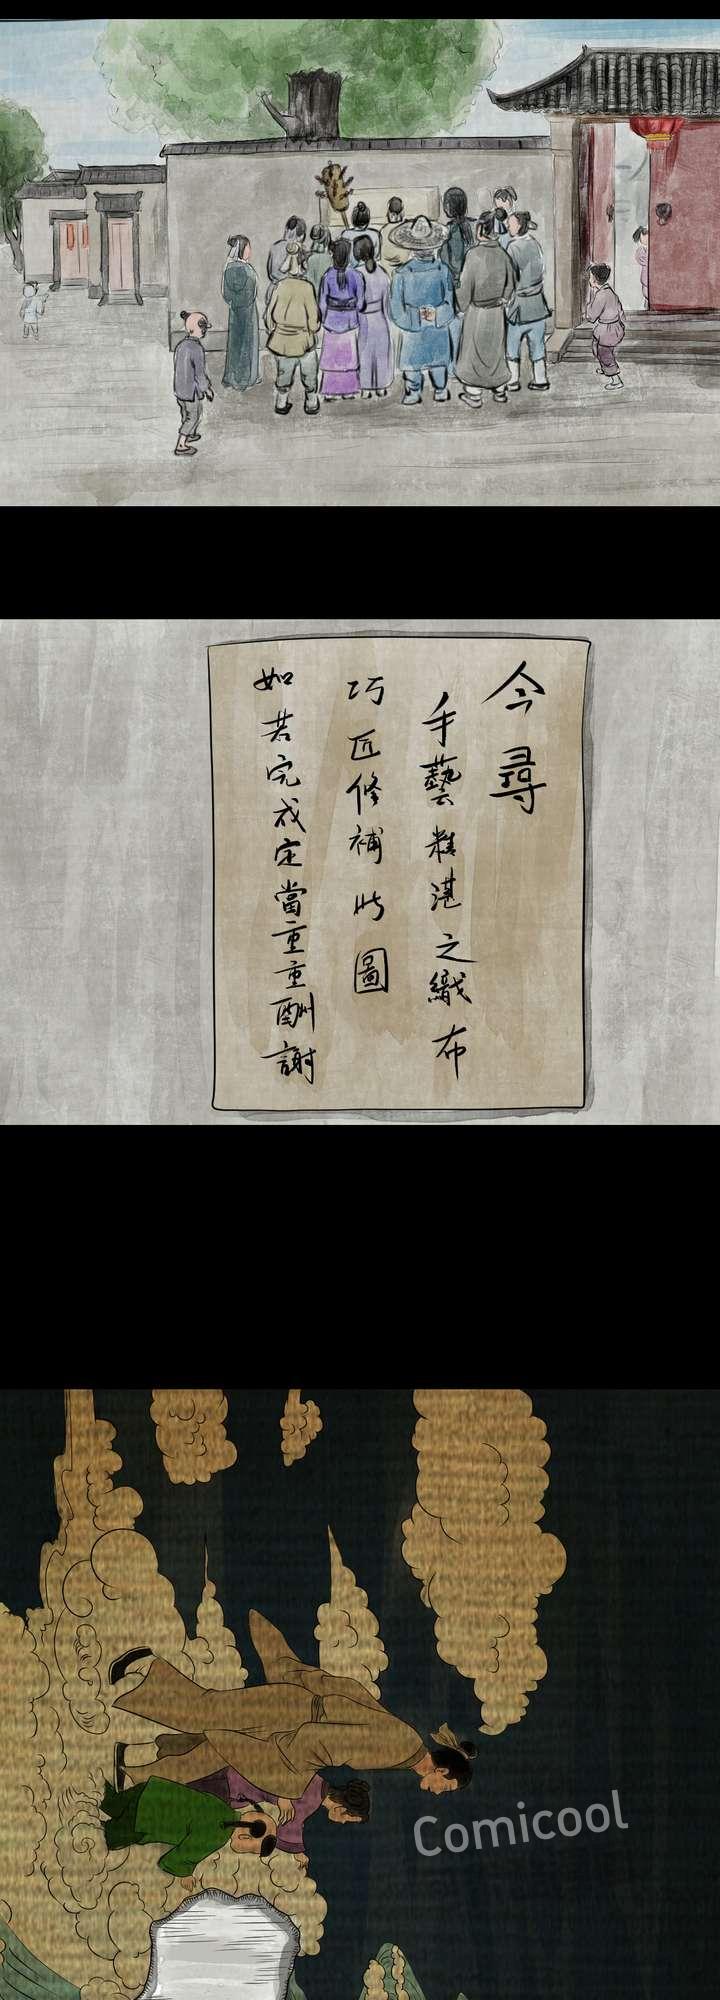 今尋
手藝精湛之織布
巧匠修補此圖
如若完成定當重重酬謝
Comicool